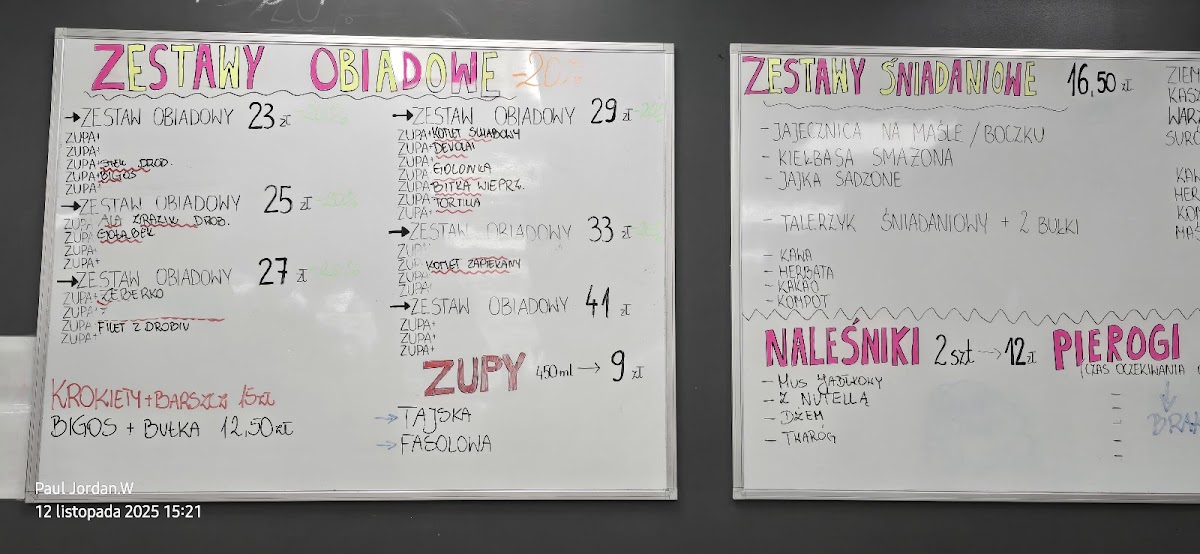 ZESTAWY OBIADOWE -20%
→ZESTAW OBIADOWY 23 zł -20%
ZUPA+
ZUPA+
ZUPA+ STEK DROB.
ZUPA+ BIGOS
ZUPA+
→ZESTAW OBIADOWY 25 zł -20%
ZUPA+ ALA ZRAZIK DROB.
ZUPA+ GOŁĄBEK
ZUPA+
ZUPA+
→ZESTAW OBIADOWY 27 zł -20%
ZUPA+ ŻEBERKO
ZUPA+
ZUPA+ FILET Z DROBIU
ZUPA+
KROKIETY+BARSZCZ 15zł
BIGOS + BUŁKA 12,50zł
→ZESTAW OBIADOWY 29 zł
ZUPA+ KOTLET SCHABOWY
ZUPA+ DEVOLAI
ZUPA+
ZUPA+ GOLONKA
ZUPA+ BITKA WIEPRZ.
ZUPA+ TORTILLA
ZUPA+
→ZESTAW OBIADOWY 33 zł
ZUPA+
ZUPA+ KOTLET ZAPIEKANY
ZUPA+
ZUPA+
→ZESTAW OBIADOWY 41 zł
ZUPA+
ZUPA+
ZUPA+
ZUPY 450ml → 9 zł
→ TAJSKA
→ FASOLOWA
ZESTAWY ŚNIADANIOWE 16,50 zł
- JAJECZNICA NA MAŚLE / BOCZKU
- KIEŁBASA SMAŻONA
- JAJKA SADZONE
- TALERZYK ŚNIADANIOWY + 2 BUŁKI
- KAWA
- HERBATA
- KAKAO
- KOMPOT
ZIEM
KASZ
WARZ
SURÓ
KAW
HER
KOM
MAŚ
NALEŚNIKI 2szt → 12 zł
- MUS JABŁKOWY
- Z NUTELLĄ
- DŻEM
- TWARÓG
PIEROGI
(CZAS OCZEKIWANIA
BRAK
Paul Jordan.W
12 listopada 2025 15:21